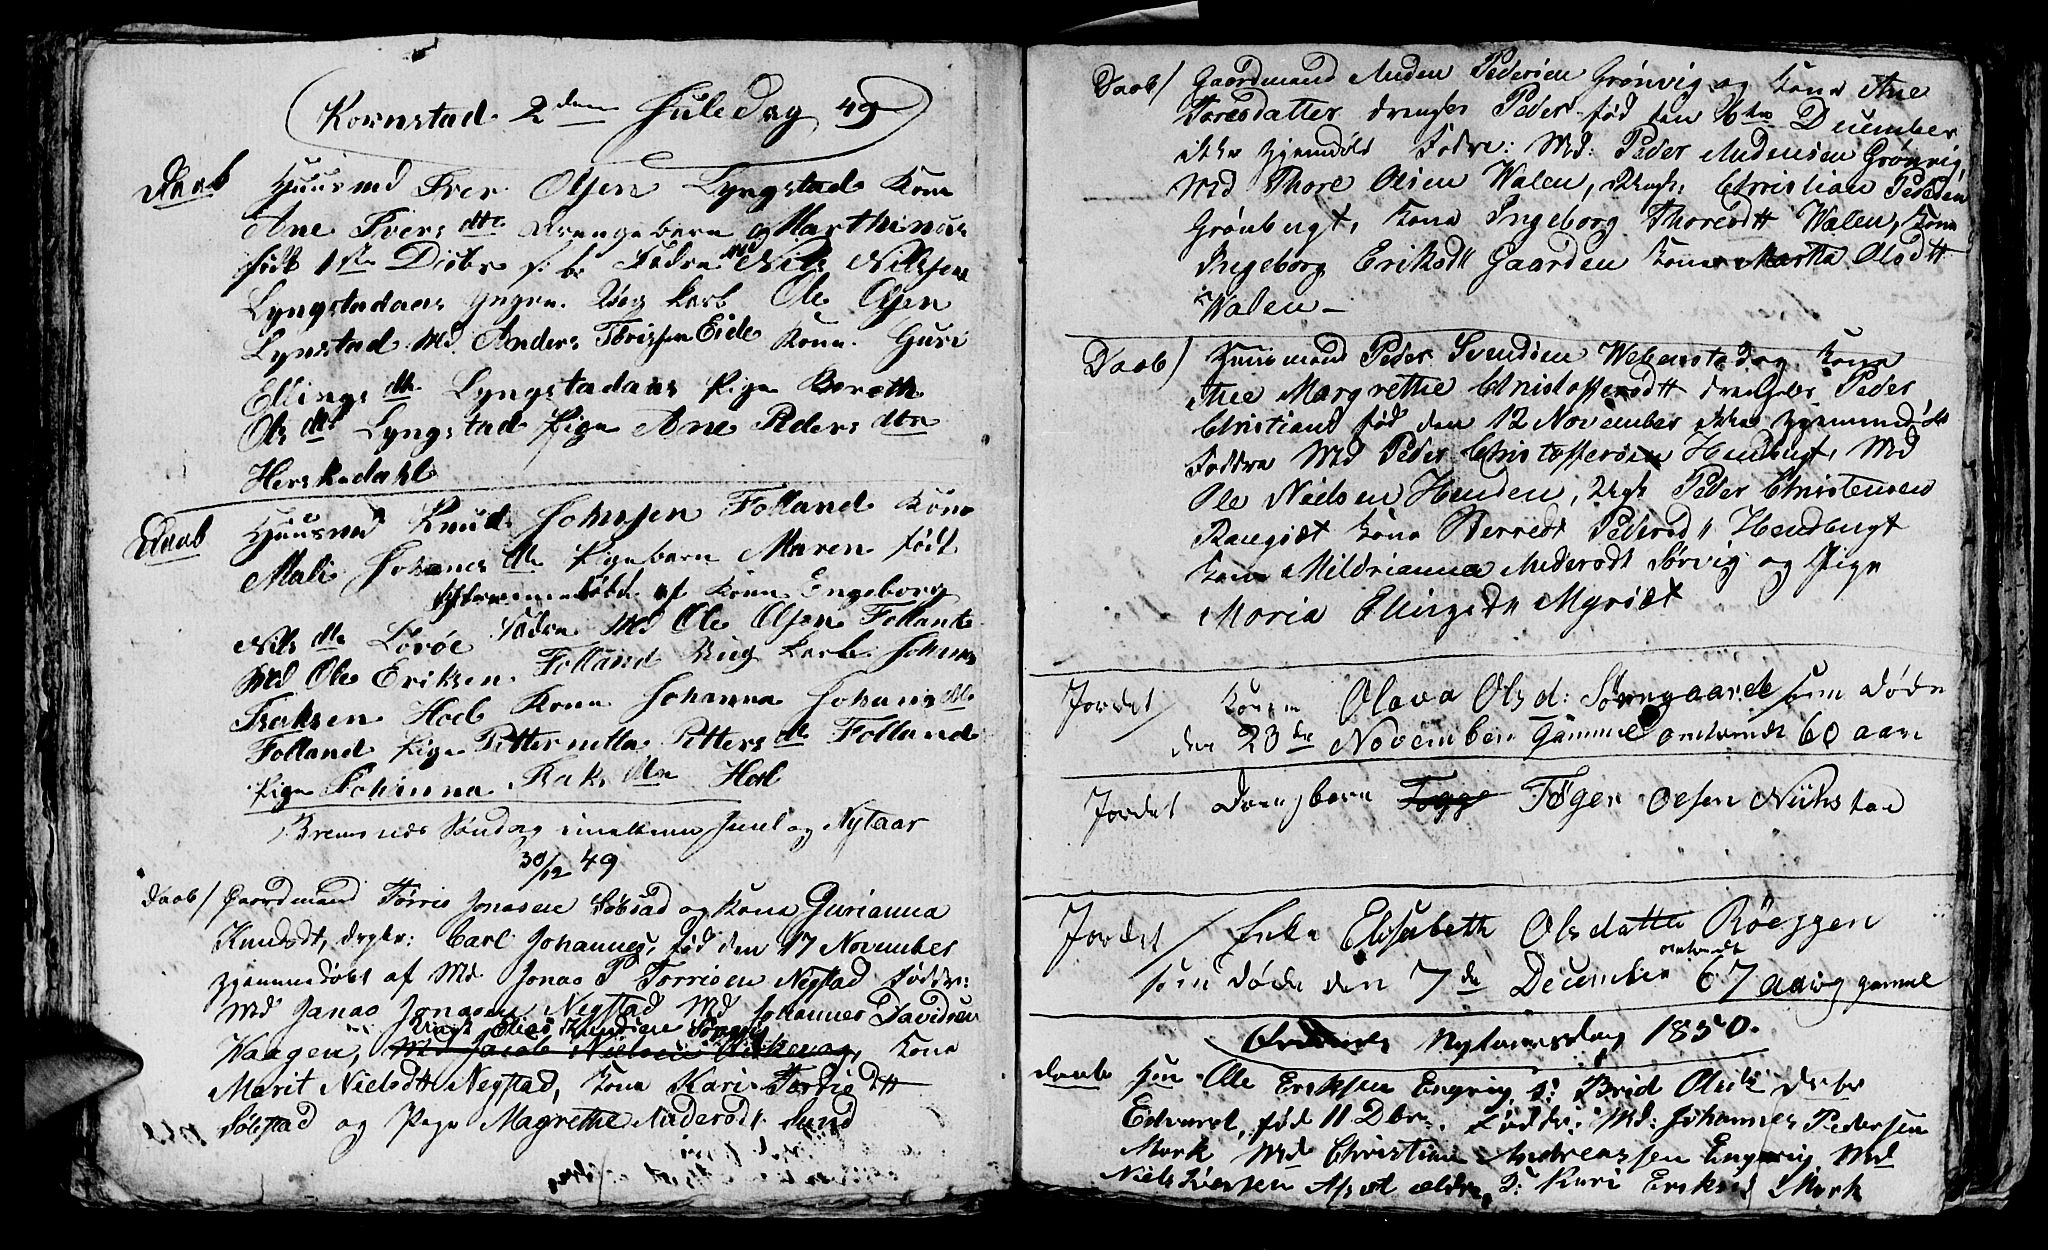 Kornstad 2den Juledag 49
Daab Huusmd Iver Olsen Lyngstad Kone
Ane Ivers dtr Drengebarn Marthinus
født 1ste Dcbr f: br Fadre Md Nils Nilssen
Lyngstadaas Ungk. Ole Olsen
Lynstad Md Anders Tørissen Eide Kone Guri
Ellings dtr Lyngstadaas Pige Bereth
Ols dtr Lyngstad Pige Ane Peders dtr
Herskedahl
Daab Huusmd Knud Johnsen Folland Kone
Mali Johanes dtr Pigebarn Maren født
hjemmedøbt af Kone Engeborg
Nils dtr Lovøe Fadre Md Ole Olsen Folland
Md Ole Eriksen Folland Ung Karl Johnes
Iraksen Hoel Kone Johanna Johanes dtr
Folland Pige Pitternilla Pitters dtr Folland
Pige Johanna Iraks dtr Hoel
Bremsnes Søndag imellem Juul og Nytaar
30/12 49
Daab/ Gaardmand Tørris Jonasen Søbstad og Kone Gurianna
Knudsdt, drgbr: Carl Johannes, fød den 17 November
hjemmedøbt af Md Jonas P Torrisen Negstad Faddre:
Md Janas Jonasen Negstad Md Johannes Davidsen
Ungk Elias Knudsen
Waagen, Md Jacob Nielsen Kone
Marit Nielsdtt Negstad, Kone Kari Torrisdtt
Søbstad og Pige Magrethe Andersdt Sund
Daab/ Gaardmand Anden Pedersen Grønvig og Kone Ane
Toresdatter drengbr Peder fød den 6te December
ikke hjemdøbt Fadre: Md: Peder Andensen Grønvig,
Md Thore Olsen Walen, Ungk: Christian Pedersen
Grønbugt, Kone Ingeborg Thoresdtt Walen, Kone
Ingeborg Eriksdtt Gaarden Kone Martha Olsdtt
Walen
Daab/ Huusmand Peder Svendsen Webenstad og Kone
Ane Margrethe Christoffersdtt drengebr Peder
Christian fød den 12 November ikke hjemmedøbt
Faddre Md Peder Christoffersen Hendbugt, Md
Ole Nielsen Henden, Ungk Peder Christensen
Rangset Kone Berret Pedersdtt Hendbugt
Kone Mildrianna Andersdt Sørvig og Pige
Maria Ellingsdtt Myrset
Jordet/ Konen Olava Olsd: Sørngaard som døde
den 23de November Gammel omtrendt 60 aar
Jordet Drengbarn Tøger Olsen Nükstad
Jordet/ Enke Elisabeth Olsdatter Røeggen
omtrendt
som døde den 7de December 67 aarig gammel
Nytaarsdag 1850.
Daab Ole Eriksen Engvig, Brid Olsdt
Edvard, fød 11 Dbr. Faddr: Md: Johannes Pedersen
Mork Md Christian Andreassen Engvig Md
Niels Iversen ældre, P: Kari Eriksd Mork